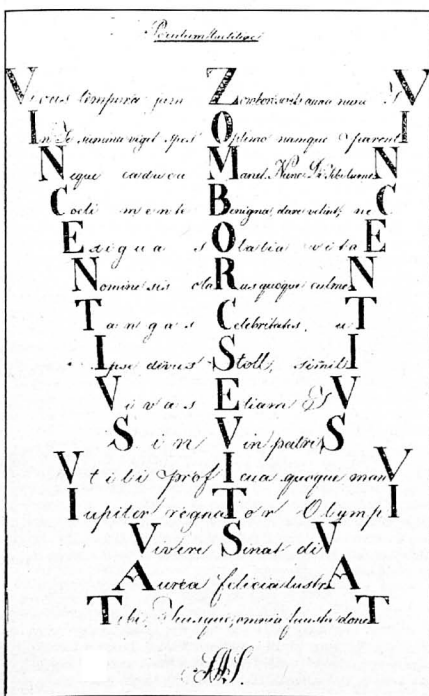 tempora jam Zomborcsevits nunc V
In Te summa viget spes Optimo namque parentI
Neque caduca Manet. Nunc Di Tibi lumeN
Coeli mente Benigna dare velint, neC
Exigua sOlatia vitaE
Nomine sis claRus quoque culmeN
Tangas Celebritatis, uT
Ipse divus Stoll, similI
Vivas Etiam V
Sin Vin patriS
Vtibi profIcua quoque manV
Iupiter regnaTor OlympI
Vivere Sinat diV
Aurea felicia lustrA
Tibi, Tuisque, omnia fausta doneT